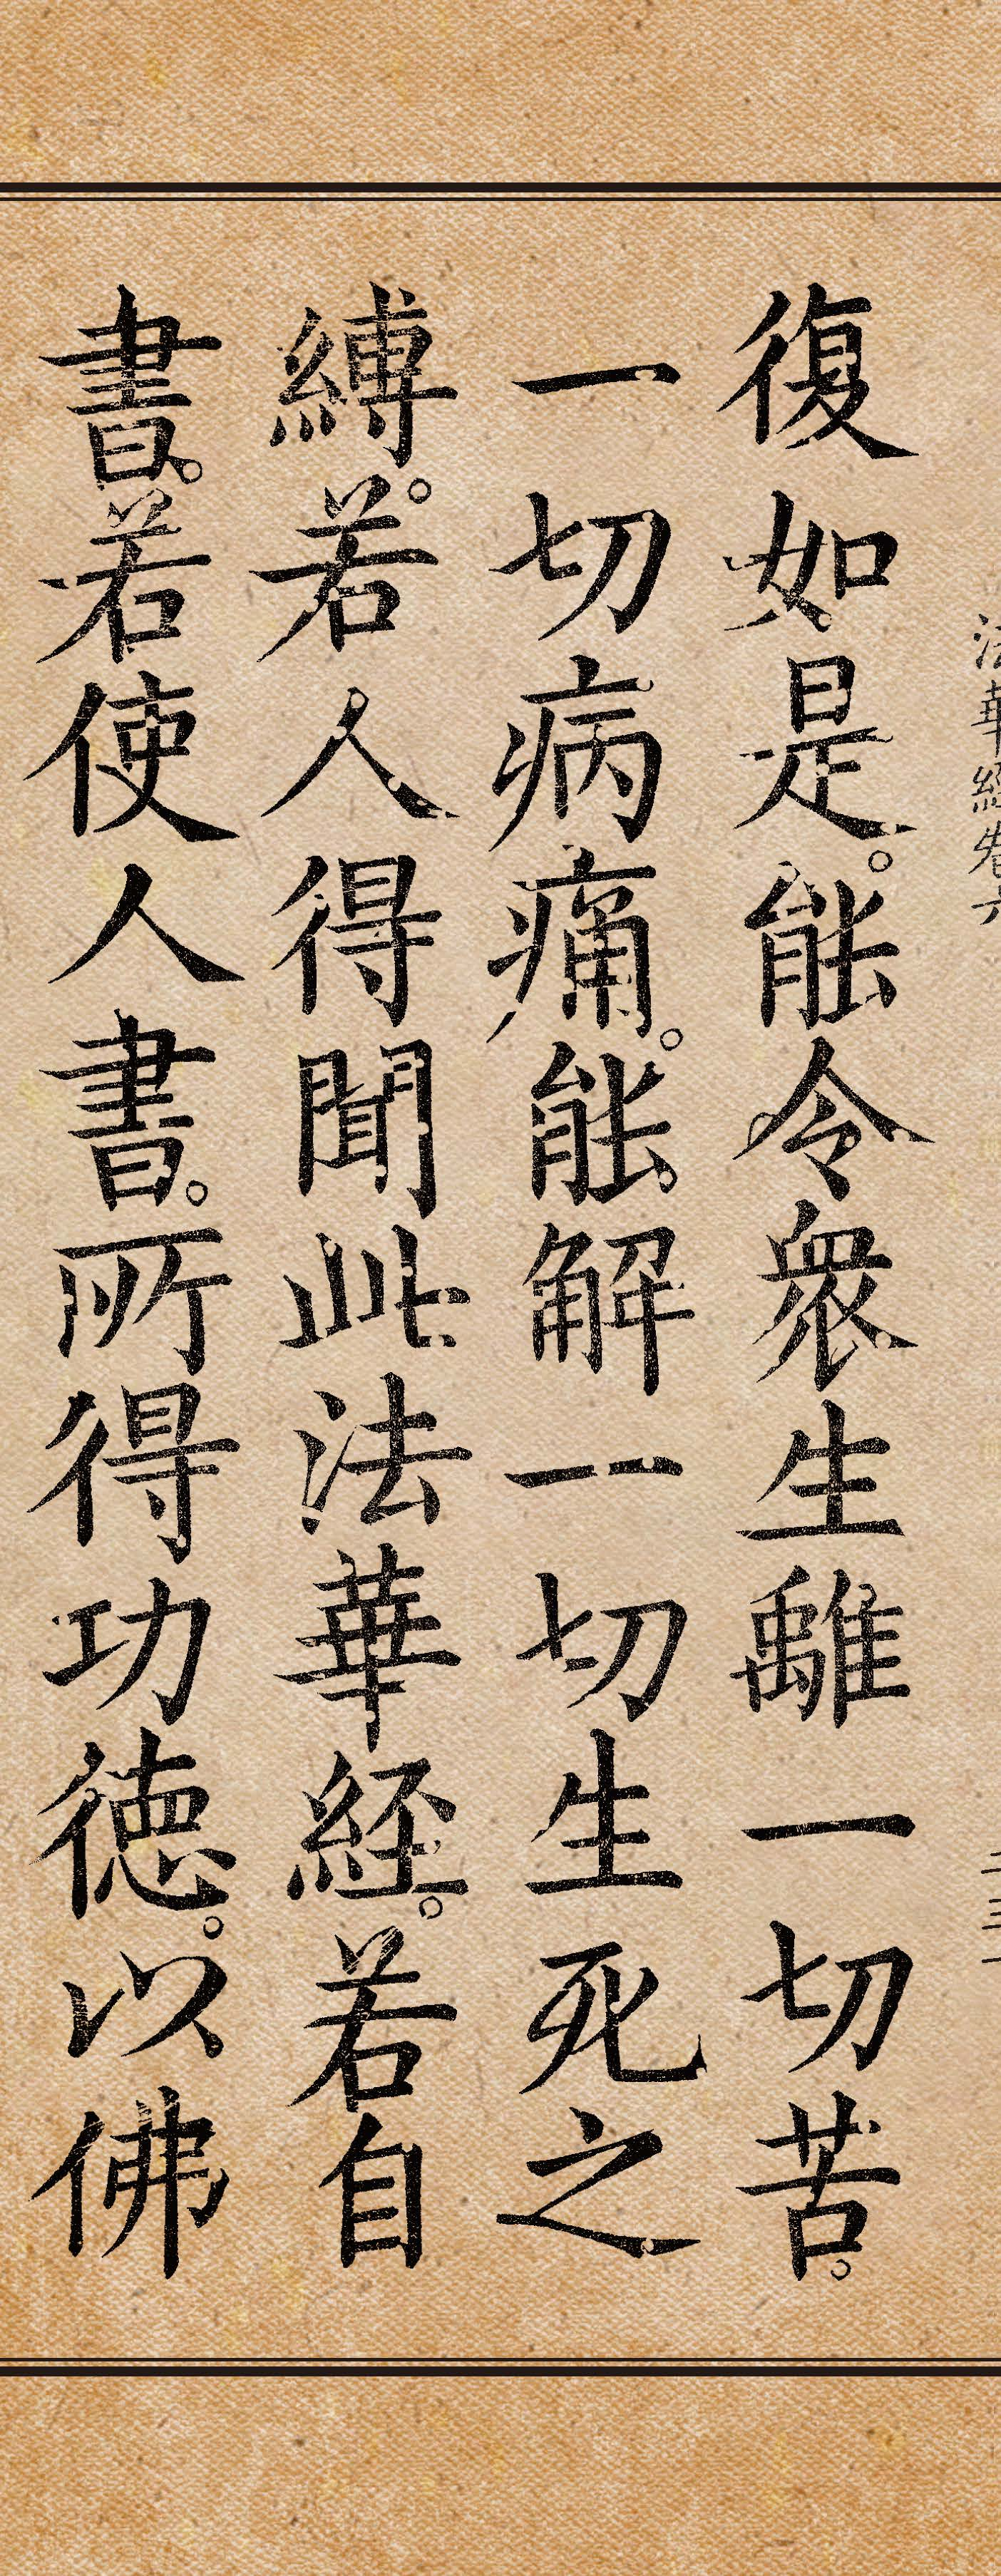 法華經卷六 二三一
復如是。能令眾生離一切苦。
一切病痛。能解一切生死之
縛。若人得聞此法華經。若自
書。若使人書。所得功德。以佛